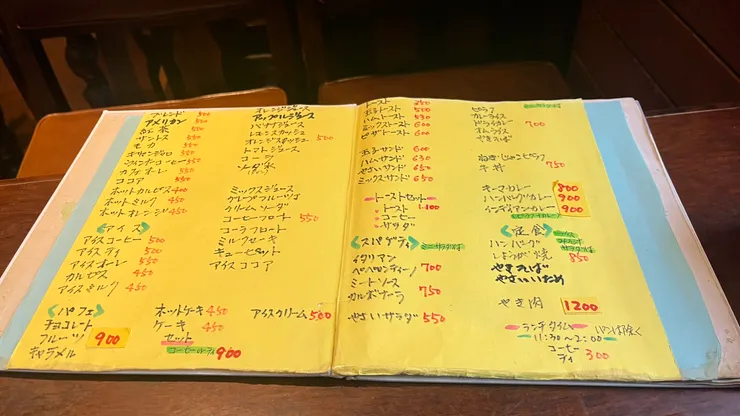 ブレンド 500
アメリカン 500
紅茶 500
サントス 550
モカ 550
キリマンジャロ 550
カフェオレ 550
ココア 550
ホットカルピス 400
ホットミルク 450
ホットオレンジ 450
《アイス》
アイスコーヒー 500
アイスティ 500
アイスオーレ 550
カルピス 450
アイスミルク 450
《パフェ》
チョコレート
フルーツ 900
キャラメル
オレンジジュース
アップルジュース
バナナジュース
レモンスカッシュ
オレンジスカッシュ 500
トマトジュース
コーラ
ソーダ水
ミックスジュース
クリームソーダ
コーヒーフロート 550
コーラフロート
ミルクセーキ
アイスココア
ホットケーキ 450
ケーキ 450
セット
コーヒーorティ 900
アイスクリーム 500
トースト 250
玉子トースト 500
ハムトースト 530
ミックストースト 600
ピザトースト 600
玉子サンド 600
ハムサンド 630
やさいサンド 650
ミックスサンド 650
トーストセット
トースト 1.100
コーヒー
サラダ
《スパゲティ》 ミニサラダ付
イタリアン
ペペロンティーノ 700
ミートソース
カルボナーラ 750
やさいサラダ 550
ピラフ
カレーライス
ドライカレー 700
オムライス
やきめし
牛丼 750
キーマカレー 800
ハンバーグカレー 900
インディアンカレー 900
《定食》
ハンバーグ
しょうが焼 850
やきそば
やさいいため
やき肉 1200
ランチタイム
11:30〜2:00
コーヒー
ティ 300